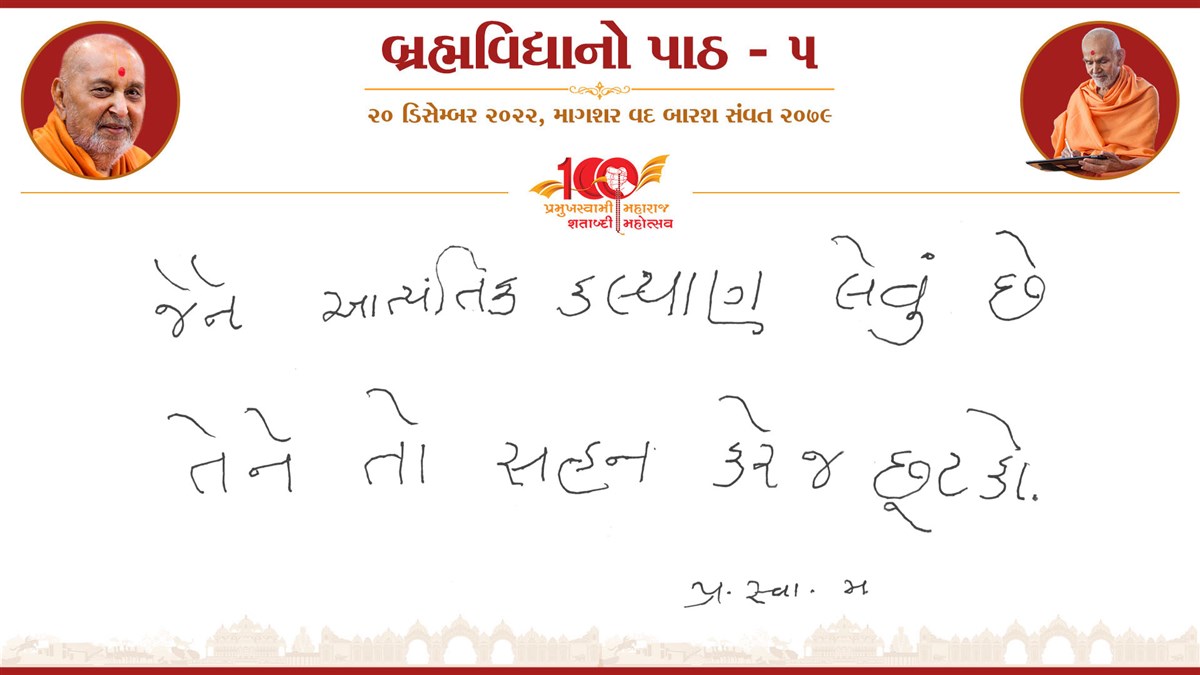 બ્રહ્મવિદ્યાનો પાઠ - ૫
૨૦ ડિસેમ્બર ૨૦૨૨, માગશર વદ બારશ સંવત ૨૦૭૯
100
પ્રમુખસ્વામી મહારાજ
શતાબ્દી મહોત્સવ
જેને આત્યંતિક કલ્યાણ લેવું છે
તેને તો સહન કરે જ છૂટકો.
પ્ર. સ્વા. મ